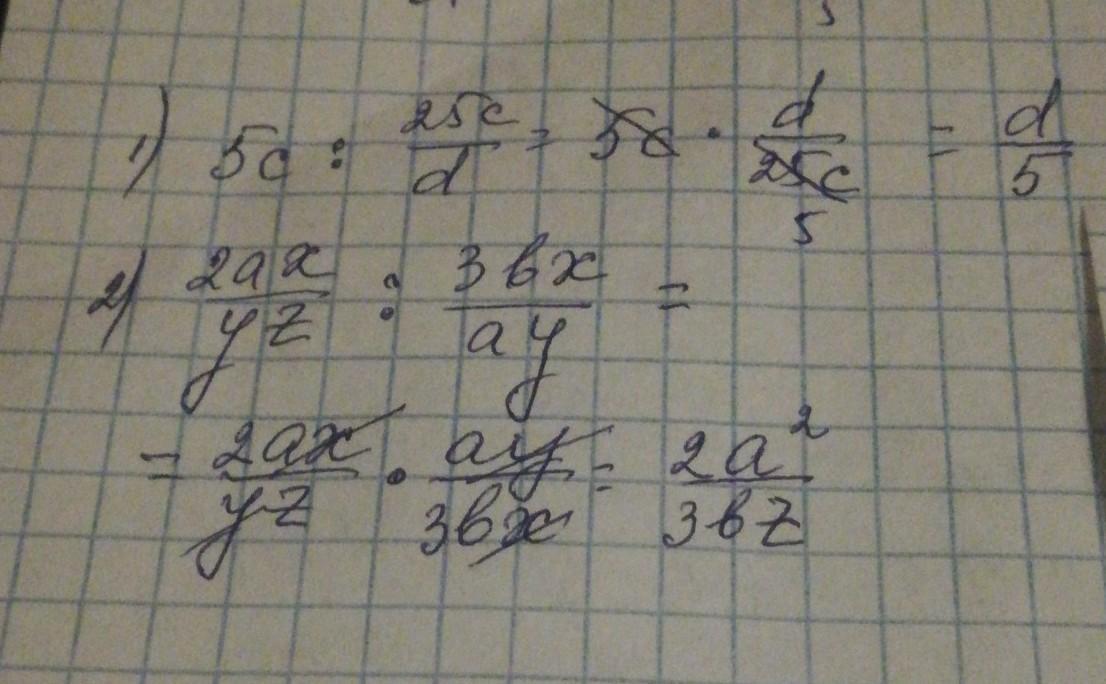 1) 5c : 25c/d = 5c · d/25c = d/5
5
2) 2ax/yz : 3bx/ay =
= 2ax/yz · ay/3bx = 2a²/3bz